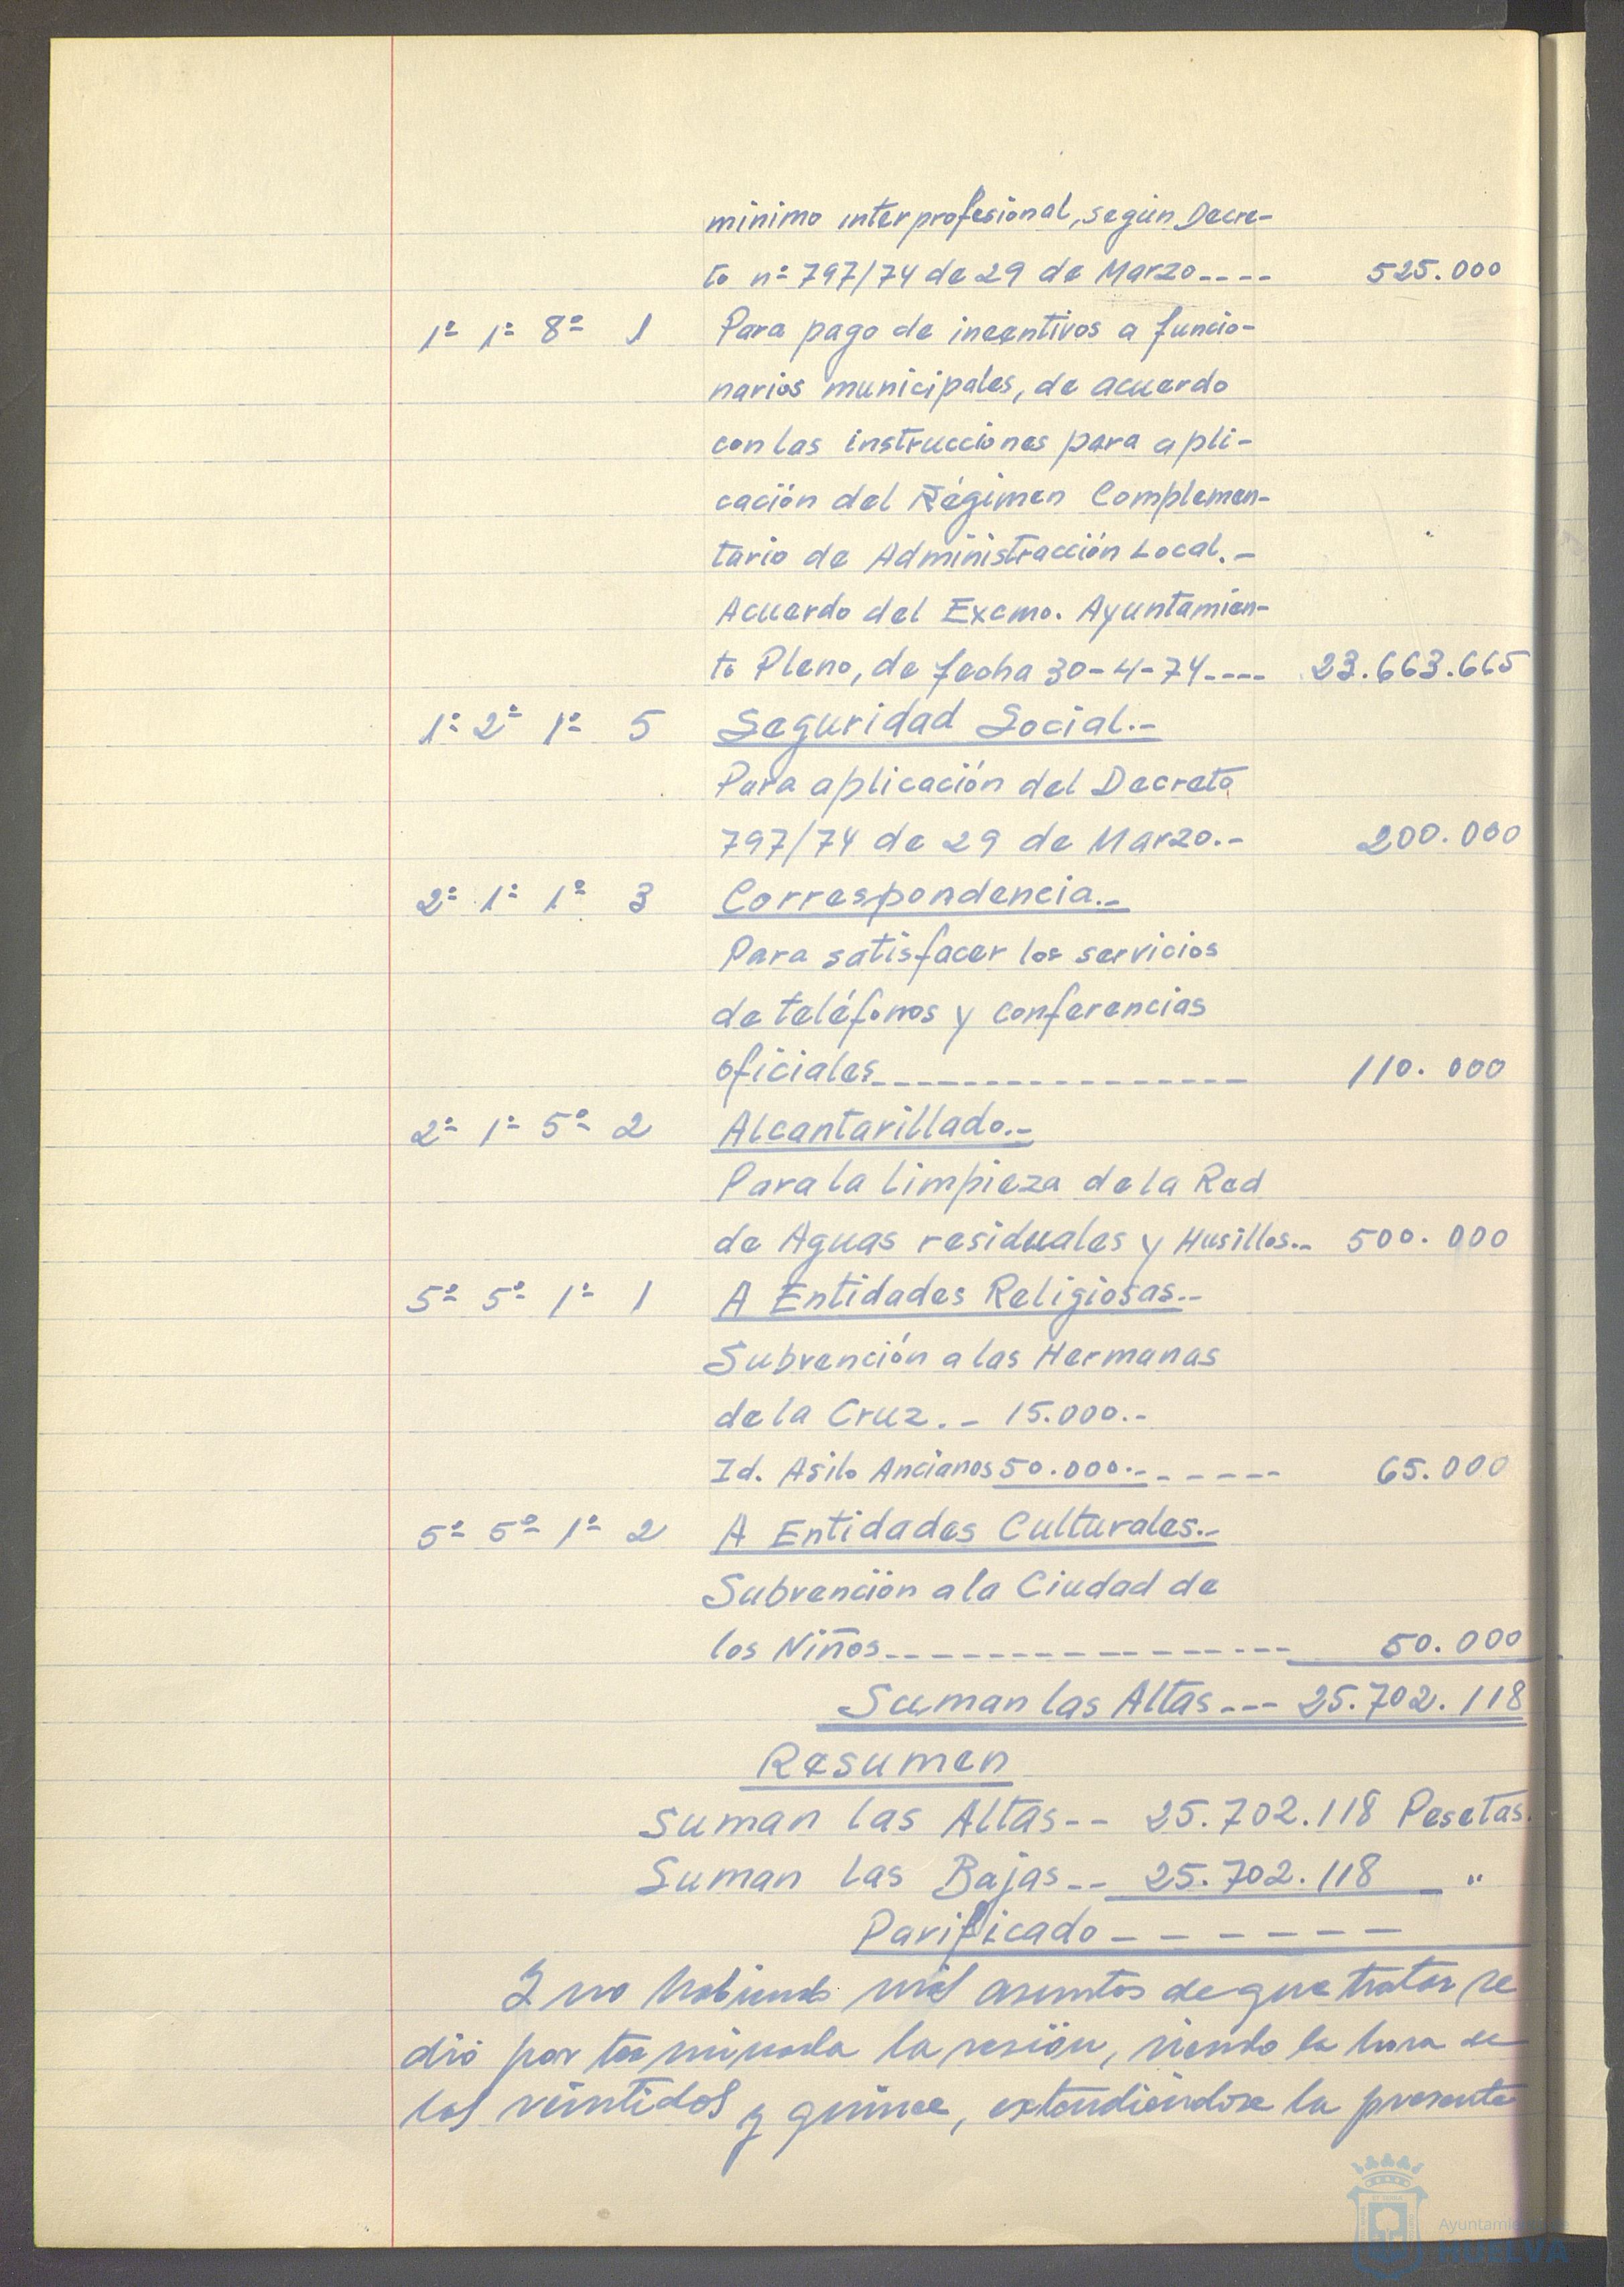 mínimo interprofesional, según Decre-
to nº 797/74 de 29 de Marzo---- 525.000
1º 1º 8º 1 Para pago de incentivos a funcio-
narios municipales, de acuerdo
con las instrucciones para apli-
cación del Régimen Complemen-
tario de Administracción Local.-
Acuerdo del Excmo. Ayuntamien-
to Pleno, de fecha 30-4-74---- 23.663.665
1º 2º 1º 5 Seguridad Social.-
Para aplicación del Decreto
797/74 de 29 de Marzo.- 200.000
2º 1º 1º 3 Correspondencia.-
Para satisfacer los servicios
de teléfonos y conferencias
oficiales----------------- 110.000
2º 1º 5º 2 Alcantarillado.-
Para la limpieza de la Red
de Aguas residuales y Husillos.- 500.000
5º 5º 1º 1 A Entidades Religiosas.-
Subvención a las Hermanas
de la Cruz.- 15.000.-
Id. Asilo Ancianos 50.000.------ 65.000
5º 5º 1º 2 A Entidades Culturales.-
Subvención a la Ciudad de
los Niños----------------- 50.000
Suman las Altas--- 25.702.118
Resumen
Suman las Altas-- 25.702.118 Pesetas.
Suman las Bajas-- 25.702.118 "
Parificado-------
Y no habiendo más asuntos de que tratar se
dió por terminada la sesión, siendo la hora de
las veintidos y quince, extendiéndose la presente
Ayuntamiento de
HUELVA